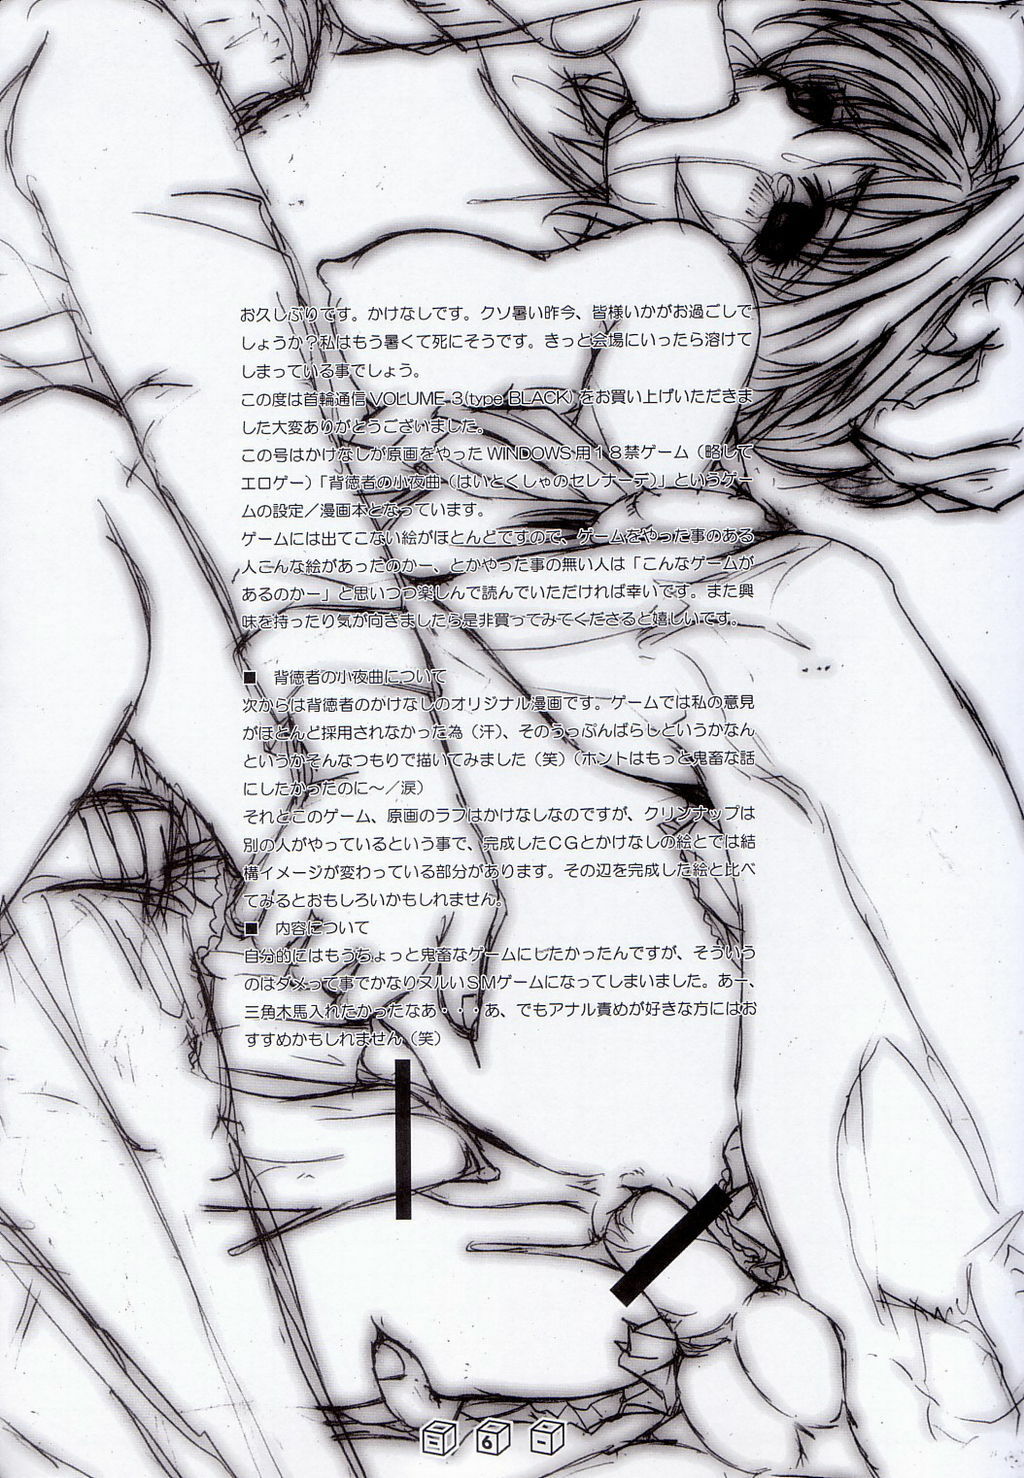 お久しぶりです。かけなしです。クソ暑い昨今、皆様いかがお過ごしで
しょうか?私はもう暑くて死にそうです。きっと会場にいったら溶けて
しまっている事でしょう。
この度は首輪通信 VOLUME 3(type BLACK) をお買い上げいただきま
した大変ありがとうございました。
この号はかけなしが原画をやった WINDOWS 用18禁ゲーム（略して
エロゲー）「背徳者の小夜曲（はいとくしゃのセレナーデ）」というゲー
ムの設定／漫画本となっています。
ゲームには出てこない絵がほとんどですので、ゲームをやった事のある
人こんな絵があったのかー、とかやった事の無い人は「こんなゲームが
あるのかー」と思いつつ楽しんで読んでいただければ幸いです。また興
味を持ったり気が向きましたら是非買ってみてくださると嬉しいです。
■ 背徳者の小夜曲について
次からは背徳者のかけなしのオリジナル漫画です。ゲームでは私の意見
がほとんど採用されなかった為（汗）、そのうっぷんばらしというかなん
というかそんなつもりで描いてみました（笑）（ホントはもっと鬼畜な話
にしたかったのに～／涙）
それとこのゲーム、原画のラフはかけなしなのですが、クリンナップは
別の人がやっているという事で、完成したＣＧとかけなしの絵とでは結
構イメージが変わっている部分があります。その辺を完成した絵と比べ
てみるとおもしろいかもしれません。
■ 内容について
自分的にはもうちょっと鬼畜なゲームにしたかったんですが、そういう
のはダメって事でかなりヌルいＳＭゲームになってしまいました。あー、
三角木馬入れたかったなあ・・・あ、でもアナル責めが好きな方にはお
すすめかもしれません（笑）
6